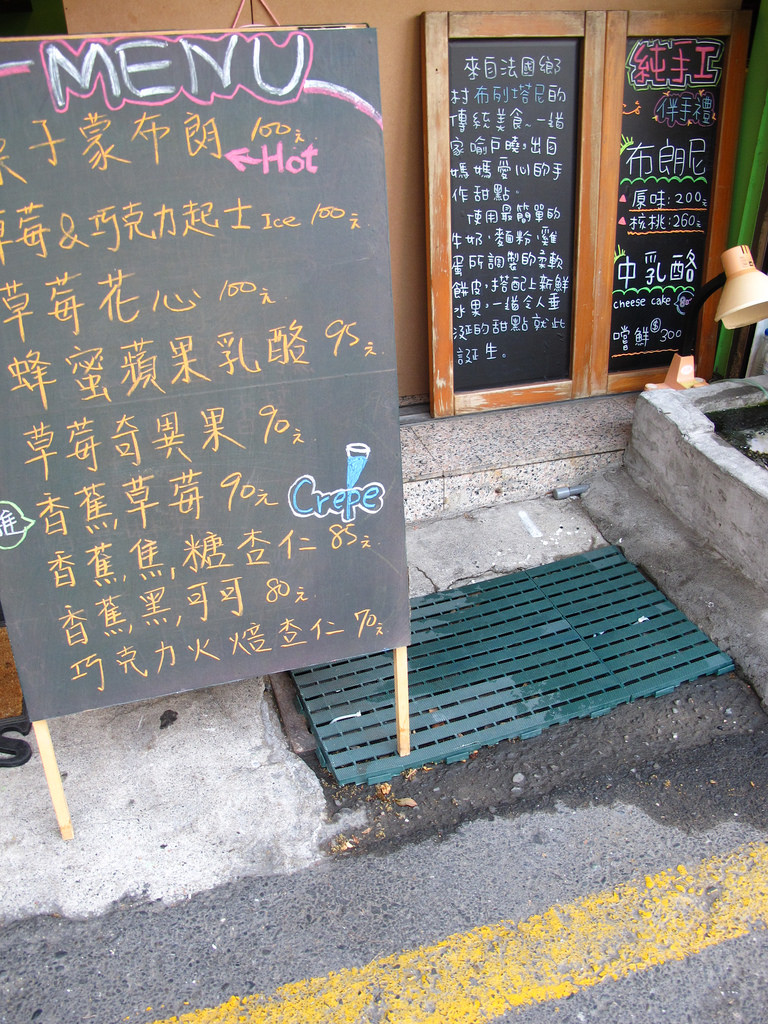 MENU
子蒙布朗 100元
Hot
草莓&巧克力起士 Ice 100元
草莓花心 100元
蜂蜜蘋果乳酪 95元
草莓奇異果 90元
香蕉,草莓 90元
Crepe
香蕉,焦,糖杏仁 85元
香蕉,黑,可可 80元
巧克力火焙杏仁 70元
來自法國鄉
村布列塔尼的
傳統美食、一道
家喻戶曉,出自
媽媽愛心的手
作甜點。
使用最簡單的
牛奶,麵粉,雞
蛋所調製的柔軟
餅皮,搭配上新鮮
水果,一道令人垂
涎的甜點就此
誕生。
純手工
伴手禮
布朗尼
原味:200元
核桃:260元
中乳酪
cheese cake
嚐鮮$300